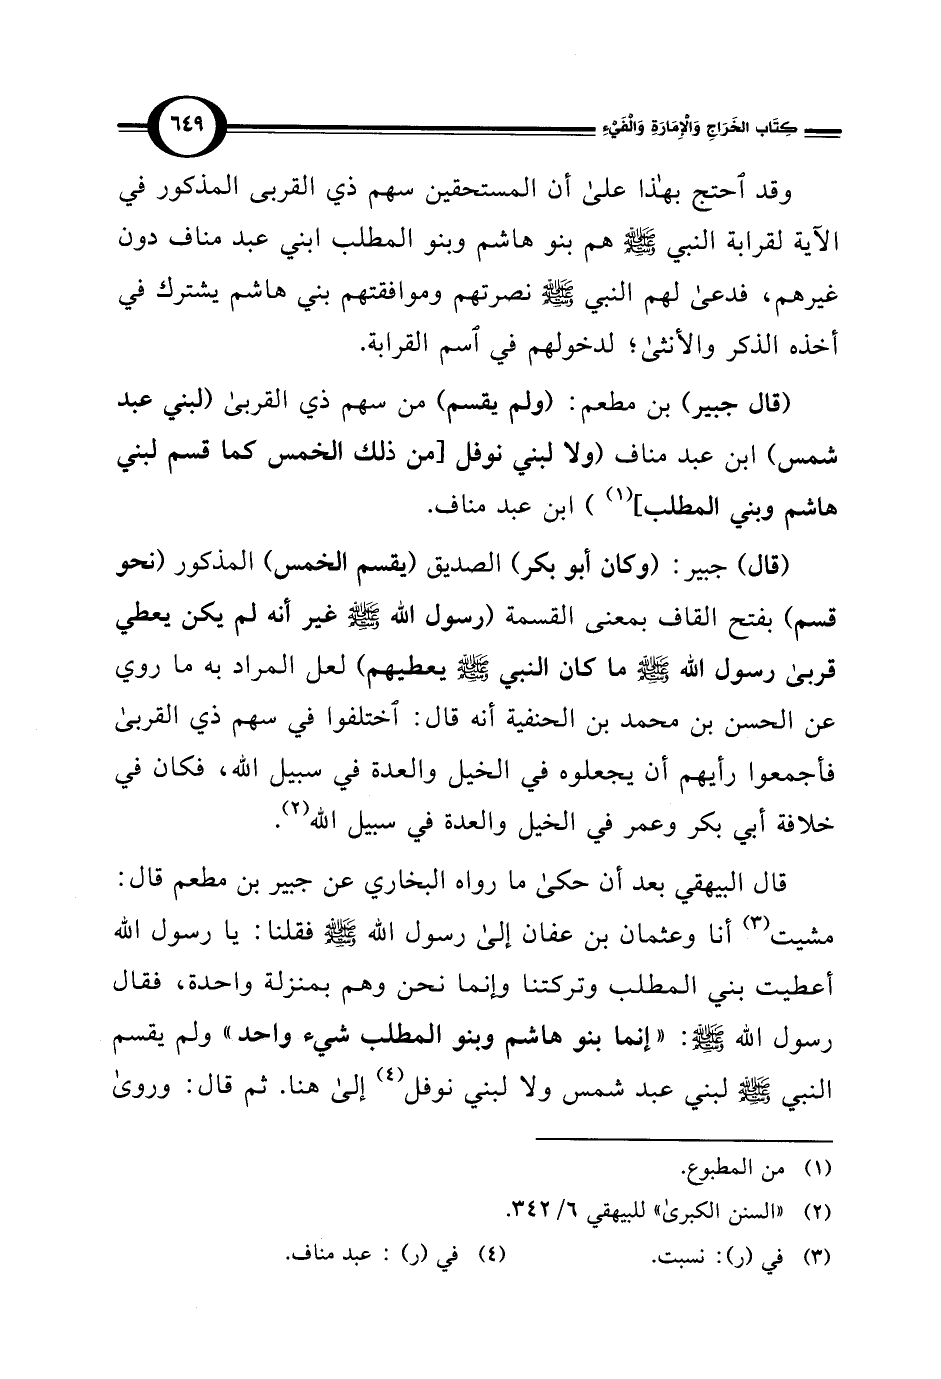 كِتَاب الخَرَاجِ وَالْإِمَارَةِ وَالْفَيْءِ ٦٤٩
وقد ٱحتج بهٰذا علىٰ أن المستحقين سهم ذي القربى المذكور في
الآية لقرابة النبي ﷺ هم بنو هاشم وبنو المطلب ابني عبد مناف دون
غيرهم، فدعىٰ لهم النبي ﷺ نصرتهم وموافقتهم بني هاشم يشترك في
أخذه الذكر والأنثىٰ؛ لدخولهم في ٱسم القرابة.
(قال جبير) بن مطعم: (ولم يقسم) من سهم ذي القربىٰ (لبني عبد
شمس) ابن عبد مناف (ولا لبني نوفل [من ذلك الخمس كما قسم لبني
هاشم وبني المطلب](١) ) ابن عبد مناف.
(قال) جبير: (وكان أبو بكر) الصديق (يقسم الخمس) المذكور (نحو
قسم) بفتح القاف بمعنى القسمة (رسول الله ﷺ غير أنه لم يكن يعطي
قربىٰ رسول الله ﷺ ما كان النبي ﷺ يعطيهم) لعل المراد به ما روي
عن الحسن بن محمد بن الحنفية أنه قال: ٱختلفوا في سهم ذي القربىٰ
فأجمعوا رأيهم أن يجعلوه في الخيل والعدة في سبيل الله، فكان في
خلافة أبي بكر وعمر في الخيل والعدة في سبيل الله(٢).
قال البيهقي بعد أن حكىٰ ما رواه البخاري عن جبير بن مطعم قال:
مشيت(٣) أنا وعثمان بن عفان إلىٰ رسول الله ﷺ فقلنا: يا رسول الله
أعطيت بني المطلب وتركتنا وإنما نحن وهم بمنزلة واحدة، فقال
رسول الله ﷺ: «إنما بنو هاشم وبنو المطلب شيء واحد» ولم يقسم
النبي ﷺ لبني عبد شمس ولا لبني نوفل(٤) إلىٰ هنا. ثم قال: وروىٰ
(١) من المطبوع.
(٢) «السنن الكبرىٰ» للبيهقي ٦/ ٣٤٢.
(٣) في (ر): نسبت. (٤) في (ر) : عبد مناف.